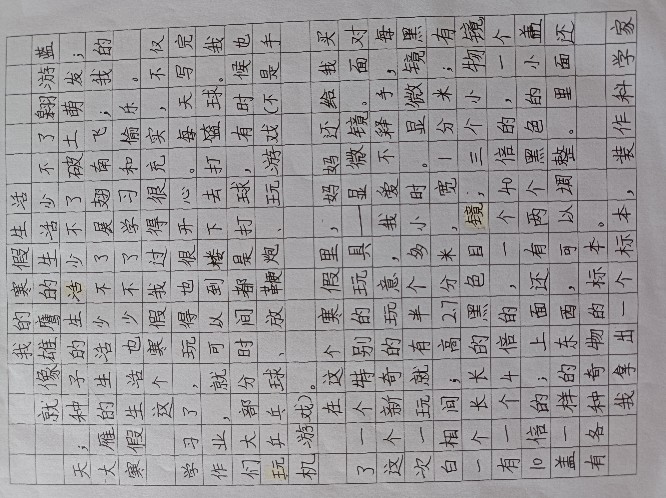 我的寒假生活
就像雄鹰的生活少不了翱游蓝
天;种子的生活少不了破土萌发;
大雁的生活少不了展翅南飞;我的
寒假生活也少不了学习和偷乐。
这个寒假我过得很充实,不仅
学习了,玩得也很开心。每天写完
作业,就可以到楼下去打篮球。我
们大部分时间都是打球,有时候也
玩乒乓球、放鞭炮、玩游戏(不是手
机游戏)。
在这个寒假里,妈妈还给我买
了一个特别的玩具——显微镜。面对
这个新奇的玩意我爱不释手,每
次一玩就有半个多小时。显微镜黑
白相间;长高2.7分米,宽1分米;有
一个长长的黑色目镜;三个小物镜
有一个4倍的,一个40倍的,一个
10倍的;上面还有两个黑色的小盖
盖一样的东西,可以调整。里面还
有各种奇物的标本。
我拿出一个标本,装作科学家